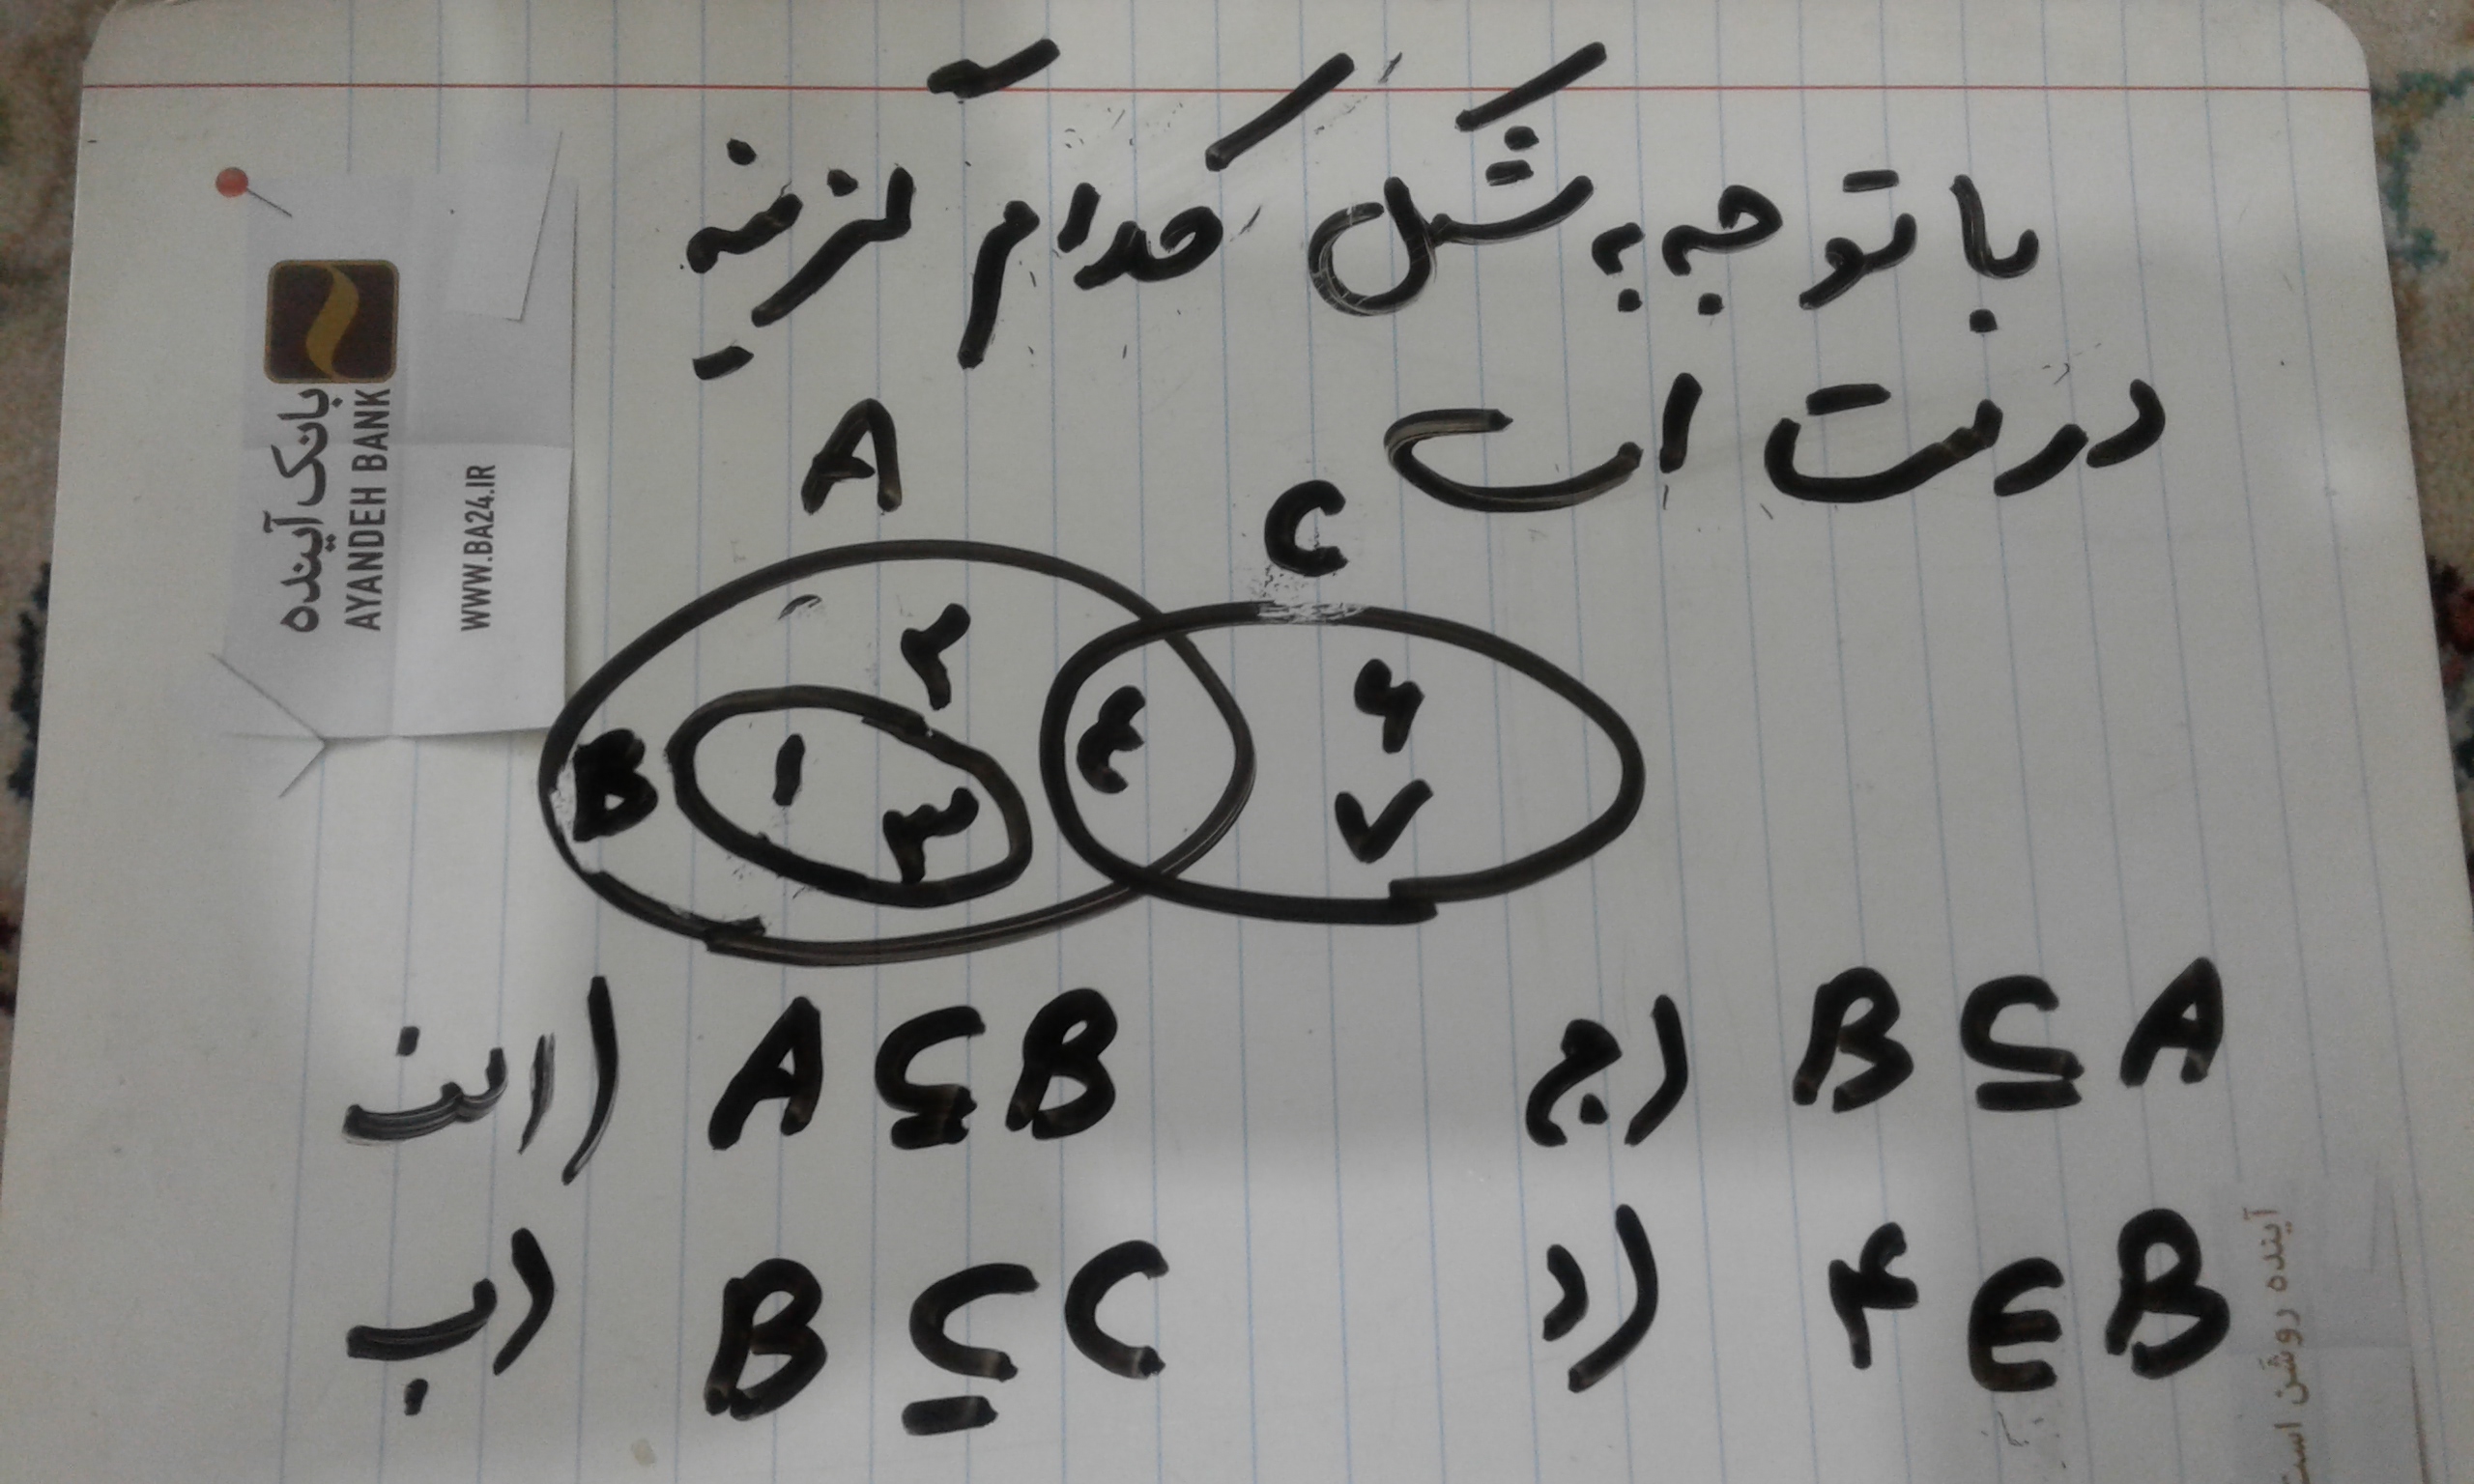 با توجه به شکل کدام گزینه
درست است
A
C
۲
B
۱
۳
۴
۶
۷
الف) A ⊆ B
ج) B ⊆ A
ب) B ⊆ C
د) ۴ ∈ B
بانک آینده
AYANDEH BANK
WWW.BA24.IR
آینده روشن است